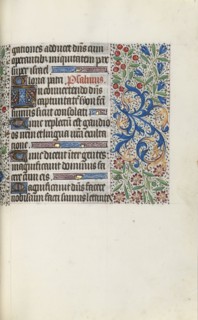 gationes adducet dns cum
operantibus iniquitatem pax
super israel.
Gloria patri. Psalmus.
In conuertendo dns
captiuitatem syon facti
sumus sicut consolati
Tunc repletum est gaudio
os nrm et lingua nra exulta
tione
Tunc dicent inter gentes
magnificauit dominus fa
cere cum eis
Magnificauit dns facere
nobiscum facti sumus letantes